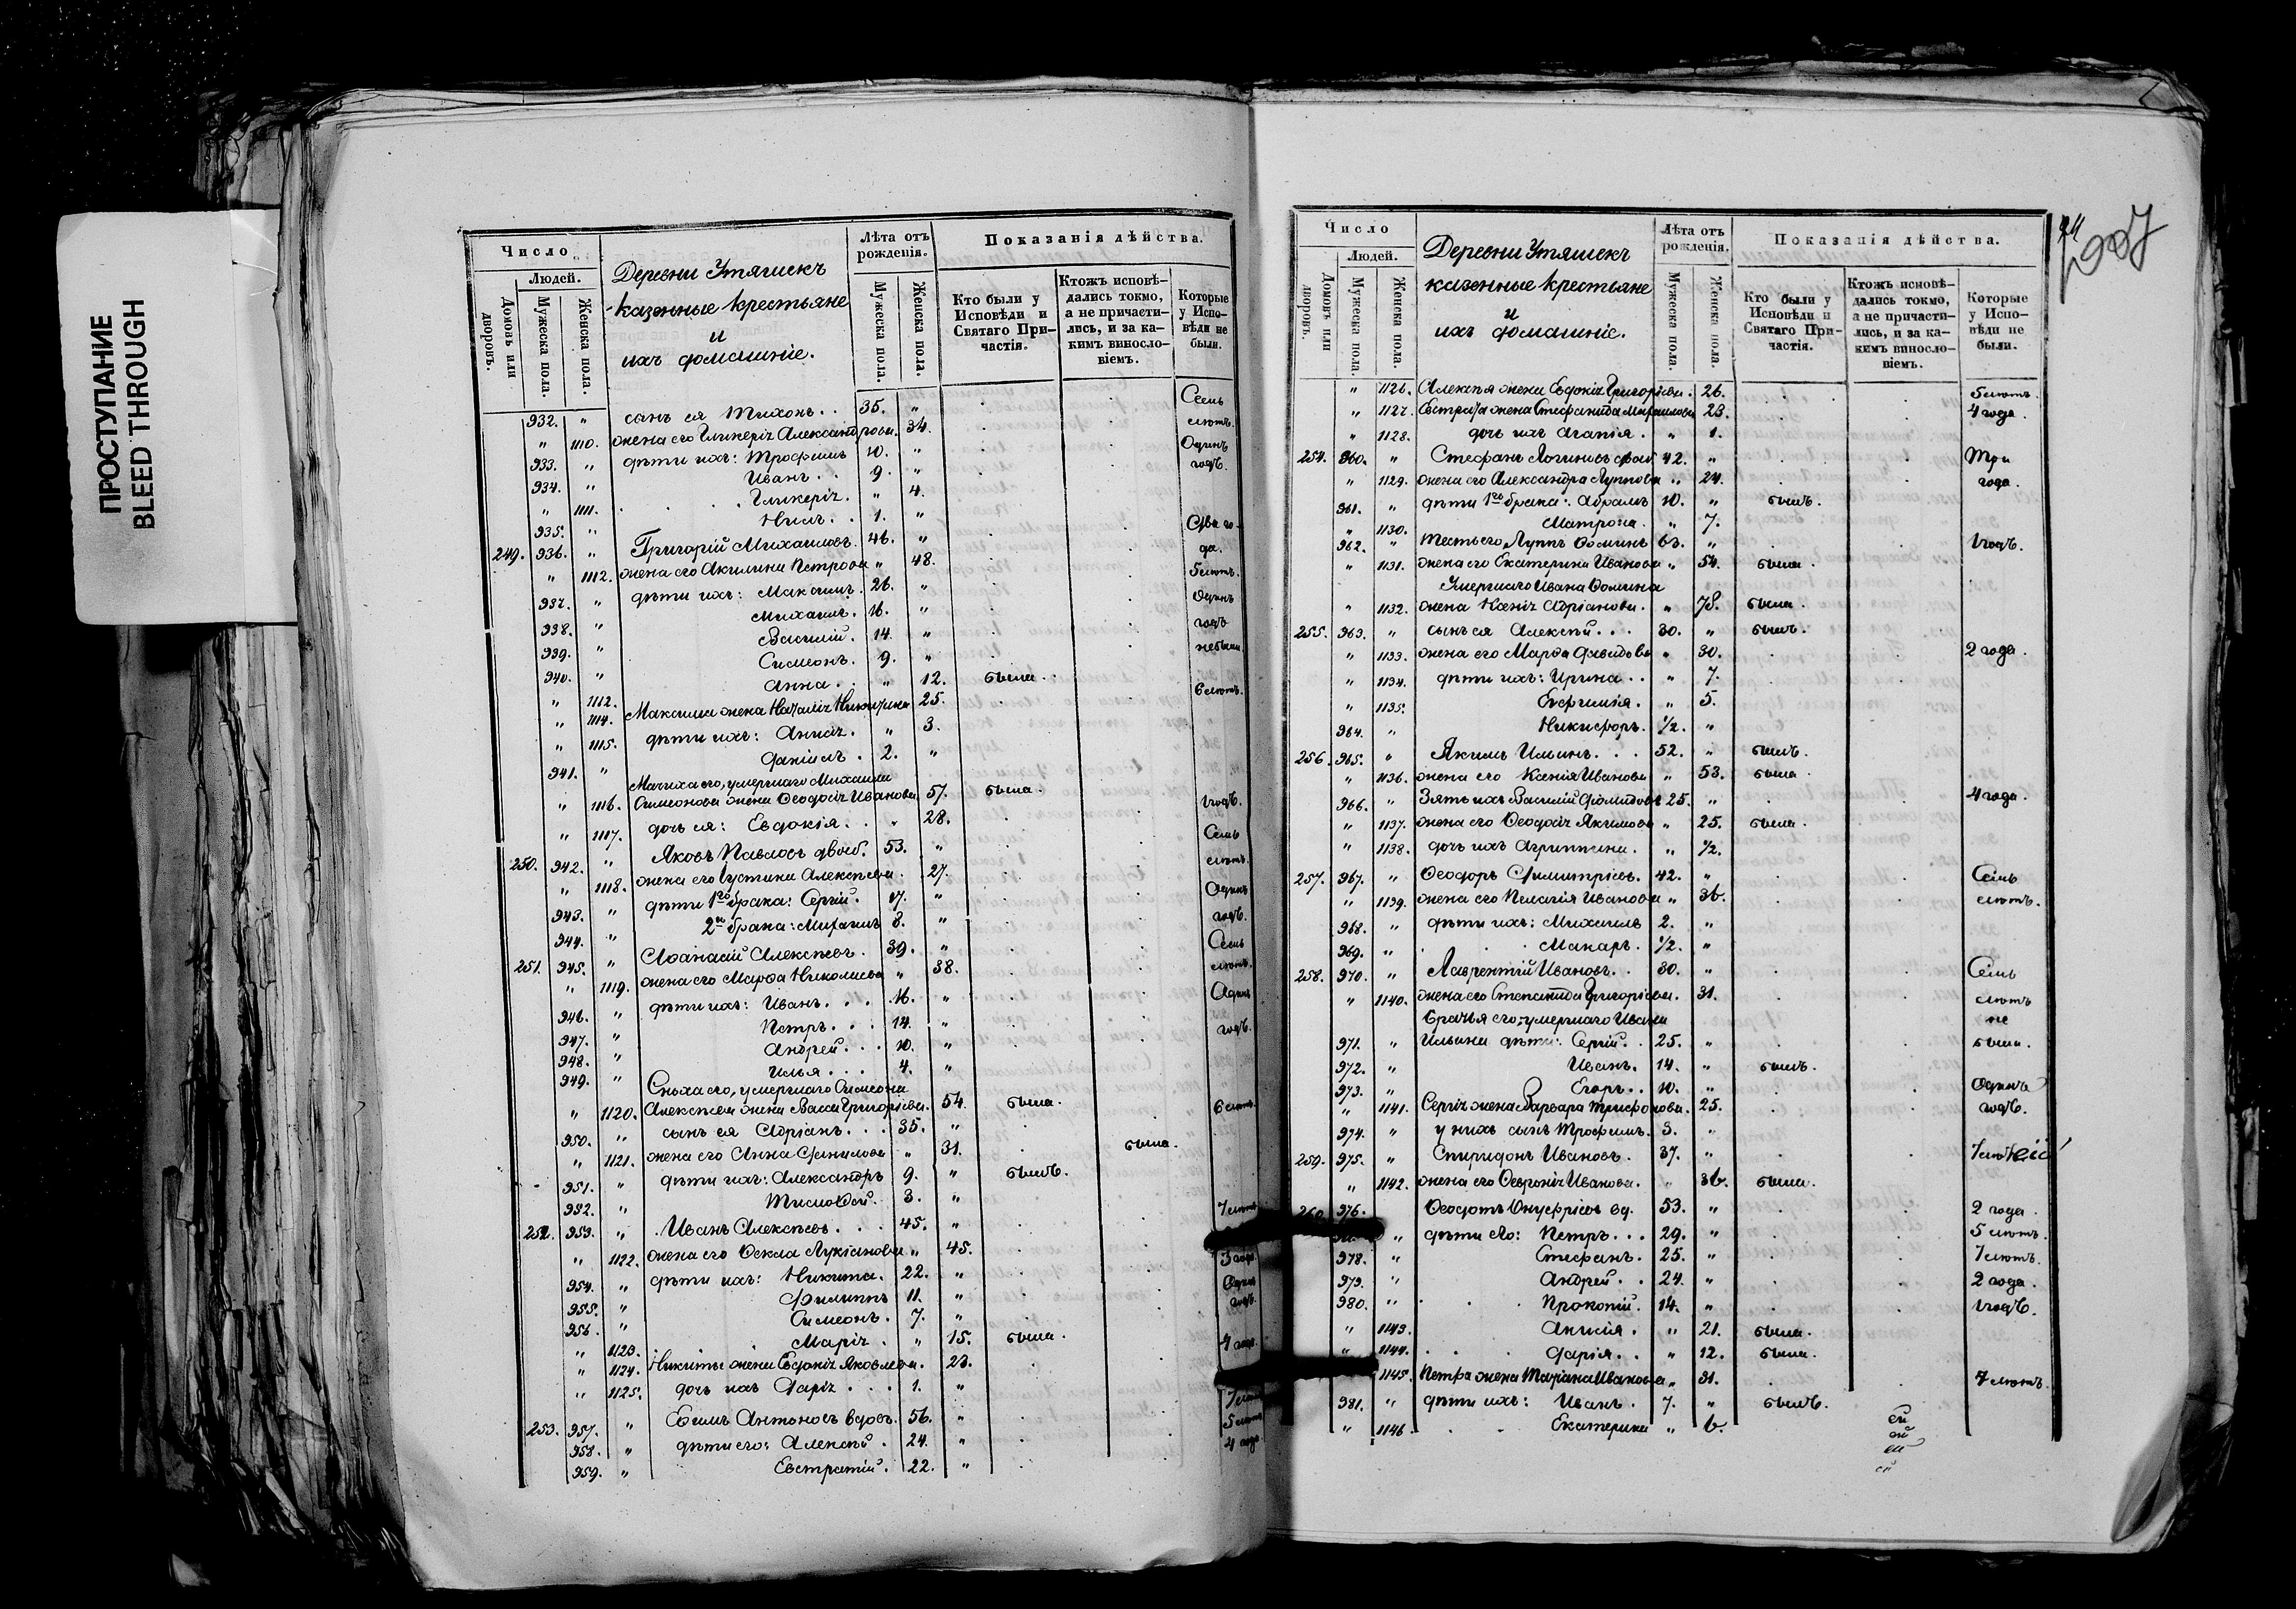 ПРОСТУПАНИЕ
BLEED THROUGH
Число
Людей.
Домовъ или дворовъ.
Мужеска пола.
Женска пола.
Деревни Утяшекъ
казенные крестьяне
и
ихъ домашніе.
Лѣта отъ рожденія.
Мужеска пола.
Женска пола.
Показанія дѣйства.
Кто были у Исповѣди и Святаго Причастія.
Ктожъ исповѣдались токмо, а не причастились, и за какимъ винословіемъ.
Которые у Исповѣди не были.
932. " сынъ ея Тихонъ. . 35. " Семь
" 1110. жена его Гликерія Александрова. 34. лѣтъ.
933. " дѣти ихъ: Трофимъ 10. " Одинъ
934. " Иванъ. . 9. " годъ.
" 1111. Гликерія. " 4.
935. " Нилъ. . 1. "
249. 936. " Григорій Михаиловъ. 46. " Два го-
" 1112. жена его Акилина Петрова " 48. да.
937. " дѣти ихъ: Максимъ. 26. " 5 лѣтъ.
938. " Михаилъ. 16. " Одинъ
939. " Василій. 14. " годъ
940. " Симеонъ. 9. " не были.
" 1112. Анна. . " 12. была.
" 1114. Максима жена Наталія Никитина 25. 6 лѣтъ.
" 1115. дѣти ихъ: Анна. " 3.
941. " Даніилъ. 2. "
Мачиха его, умершаго Михаила
" 1116. Симеонова жена Ѳеодосія Иванова. 57. была.
" 1117. дочь ея: Евдокія. . " 28. 1 годъ.
250. 942. " Яковъ Павловъ двоеб. 53. " Семь
" 1118. жена его Густина Алексѣева. 27. лѣтъ.
943. " дѣти 1го брака: Сергій. 17. " Одинъ
944. " 2го брака: Михаилъ 8. " годъ.
251. 945. " Аѳанасій Алексѣевъ. 39. " Семь
" 1119. жена его Марѳа Николаева " 38. лѣтъ.
946. " дѣти ихъ: Иванъ. . . 16. " Одинъ
947. " Петръ. . . 14. " годъ.
948. " Андрей. . . 10. "
949. " Илья. . . . 4. "
Сноха его, умершаго Симеона
" 1120. Алексѣева жена Васса Григорьева. 54. была. 6 лѣтъ.
950. " сынъ ея Адріанъ. . . 35. "
" 1121. жена его Анна Данилова " 31. была.
951. " дѣти ихъ: Александръ 9. " былъ.
952. " Тимоѳей. 3. "
252. 953. " Иванъ Алексѣевъ. . . 45. " 7 лѣтъ
" 1122. жена его Ѳекла Лукіанова " 45. 3 года
954. " дѣти ихъ: Никита. 22. " Одинъ
955. " Филиппъ 11. " годъ.
956. " Симеонъ. 7. "
" 1123. Марія. " 15. была.
" 1124. Никиты жена Евдокія Яковлева. 23. 4 года.
" 1125. дочь ихъ Дарія . . . 1. "
253. 957. " Ефимъ Антоновъ вдовъ. 56. " 7 лѣтъ
958. " дѣти его: Алексѣй. 24. " 5 лѣтъ
959. " Евстратій. 22. " 4 года.
Число
Людей.
Домовъ или дворовъ.
Мужеска пола.
Женска пола.
Деревни Утяшекъ
казенные крестьяне
и
ихъ домашніе.
Лѣта отъ рожденія.
Мужеска пола.
Женска пола.
Показанія дѣйства.
Кто были у Исповѣди и Святаго Причастія.
Ктожъ исповѣдались токмо, а не причастились, и за какимъ винословіемъ.
Которые у Исповѣди не были.
" 1126. Алексѣя жена Евдокія Григорьева. 26. 5 лѣтъ.
" 1127. Евстратія жена Стефанида Михаилова 23. 4 года.
" 1128. дочь ихъ Агапія. " 1.
254. 960. " Стефанъ Логиновъ двоеб. 42. " Три
" 1129. жена его Александра Луппова " 24. года.
961. " дѣти 1го брака: Абрамъ 10. " былъ.
" 1130. Матрона. " 7.
962. " Тесть его Луппъ Ѳоминъ 63. " 1 годъ.
" 1131. жена его Екатерина Иванова " 54. была.
Умершаго Ивана Ѳомина
" 1132. жена Ксенія Адріанова. " 78. была.
255. 963. " сынъ ея Алексѣй. . . 30. " былъ.
" 1133. жена его Марѳа Давидова " 30. 2 года.
" 1134. дѣти ихъ: Ирина. . " 7.
" 1135. Евфимія. " 5.
964. " Никифоръ. 1/2. "
256. 965. " Якимъ Ильинъ. . . 52. " былъ.
" 1136. жена его Ксенія Иванова " 53. была.
966. " Зять ихъ Василій Діомидовъ 25. " 4 года.
" 1137. жена его Ѳеодосія Якимова " 25. была.
" 1138. дочь ихъ Агриппина. " 1/2.
257. 967. " Ѳеодоръ Димитріевъ. 42. " Семь
" 1139. жена его Пелагія Иванова " 36. лѣтъ.
968. " дѣти ихъ: Михаилъ 2. "
969. " Макаръ. 1/2. "
258. 970. " Лаврентій Ивановъ. . 30. " Семь
" 1140. жена его Степанида Григорьева. 31. лѣтъ
Братья его, умершаго Ивана не
971. " Ильина дѣти: Сергій. . 25. " были.
972. " Иванъ. 14. " былъ.
973. " Егоръ. . 10. " Одинъ
" 1141. Сергія жена Варвара Трифонова. 25. годъ.
974. " у нихъ сынъ Трофимъ. 3. "
259. 975. " Спиридонъ Ивановъ. 37. " 7 лѣтъ
" 1142. жена его Ѳевронія Иванова. " 36. была.
260. 976. Ѳеодотъ Онуфріевъ вд. 53. " 2 года.
" дѣти его: Петръ. . . 29. " 5 лѣтъ.
978. " Стефанъ. 25. " 7 лѣтъ.
979. " Андрей. . 24. " 2 года.
980. " Прокопій. 14. " 1 годъ.
" 1143. Анисія. " 21. была.
" 1144. Дарія. . " 12. была.
1145. Петра жена Татіана Иванова " 31. 7 лѣтъ.
981. " дѣти ихъ: Иванъ. 7. " былъ.
" 1146. Екатерина " 6.